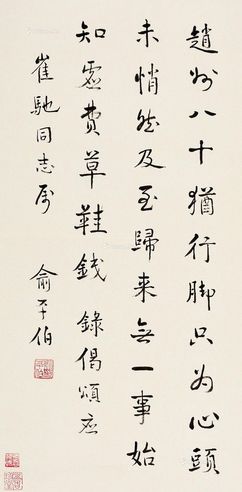 趙州八十猶行脚只为心頭
未悄然及至歸来無一事始
知虛費草鞋錢 錄偈頌应
崔馳同志属
俞平伯